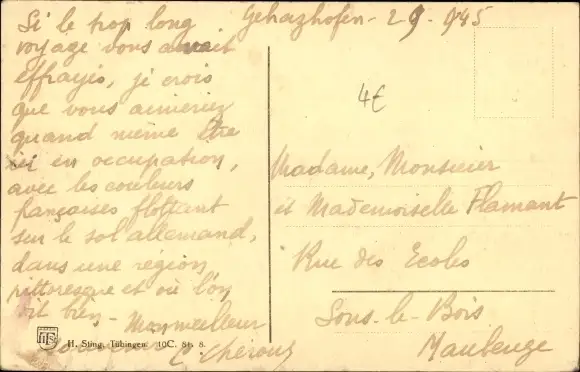 Si le trop long
voyage vous aurait
effrayés, je crois
que vous aimeriez
quand même être
ici en occupation,
avec les couleurs
françaises flottant
sur le sol allemand,
dans une région
pittoresque et où l'on
vit bien -
Mon meilleur
souvenir
29 - 945
4€
Madame, Monsieur
et Mademoiselle Flamant
Rue des Ecoles
Sous-le-Bois
Maubeuge
H. Sting, Tübingen. 10C. 81. 8.